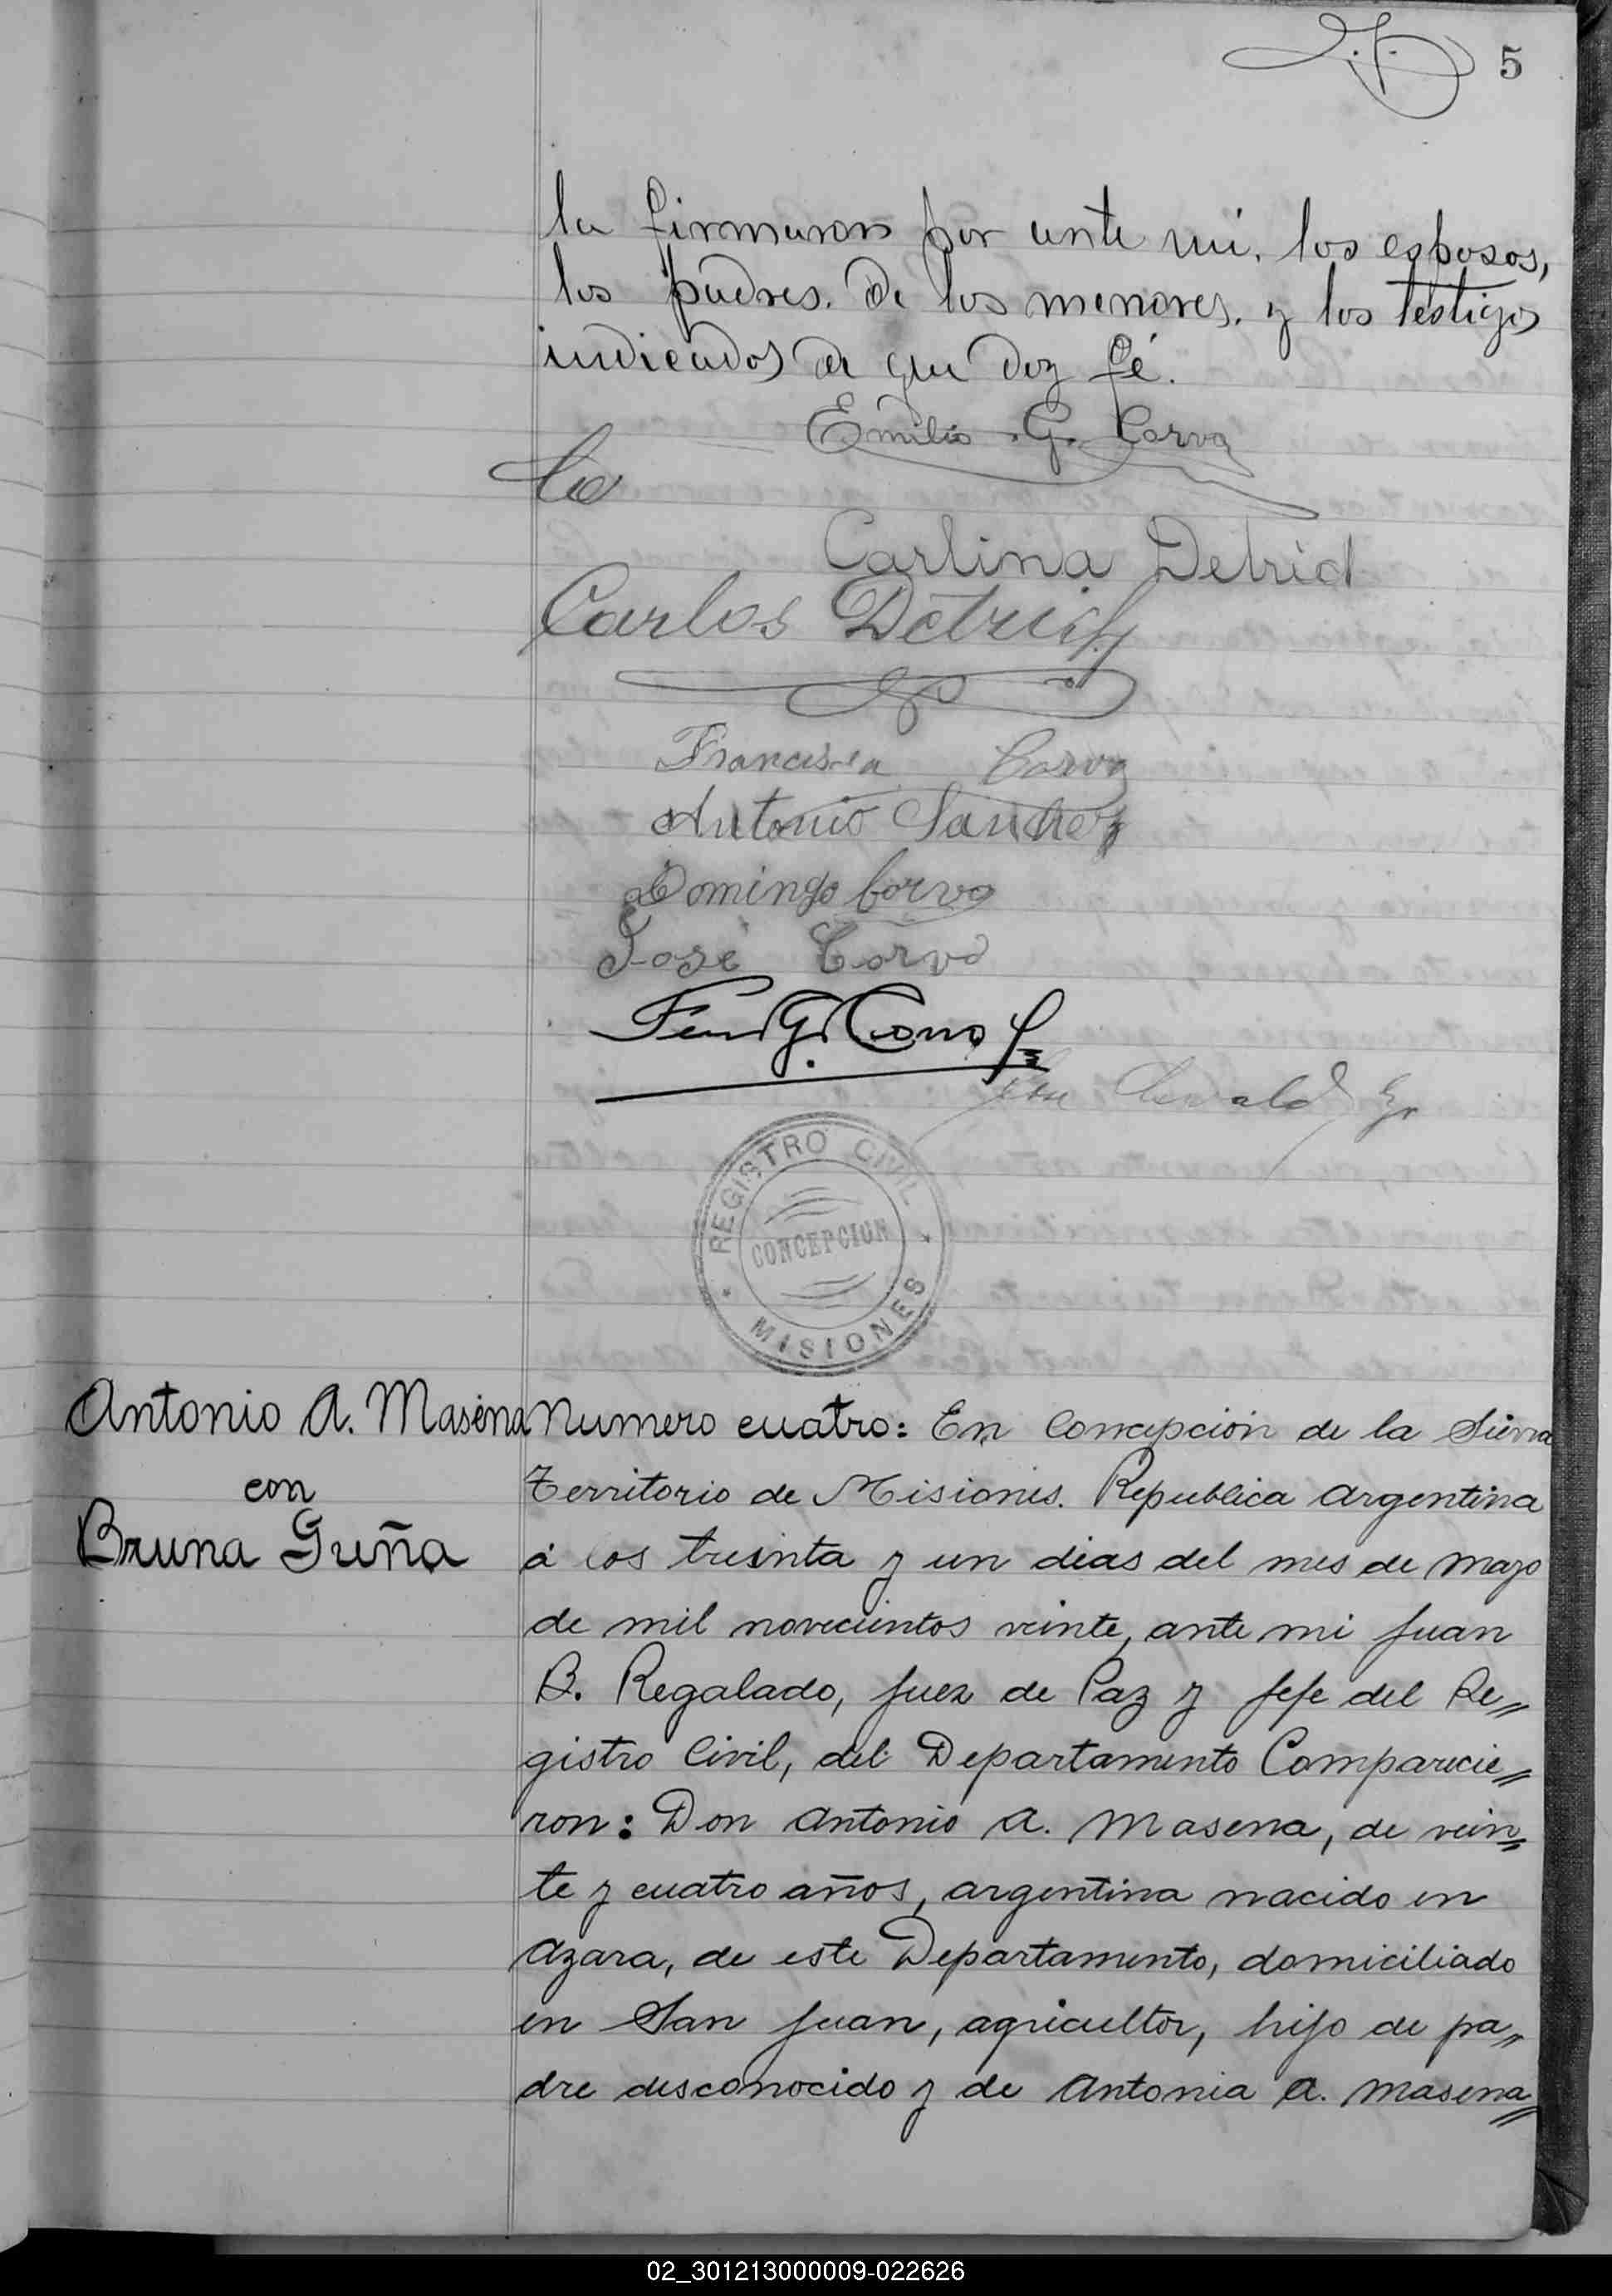 5
la firmaron por ante mi, los esposos,
los padres. de los menores. y los testigos
indicados de que doy fé.
Emilio G. Corvo
Carlina Detrid
Carlos Detrich
Francisca Corvo
Antonio Sanchez
Domingo Corvo
José Corvo
REGISTRO CIVIL
CONCEPCION
MISIONES
Antonio A. Masena
con
Bruna Guña
Numero cuatro: En Concepción de la Sierra
Territorio de Misiones. Republica Argentina
á los treinta y un dias del mes de Mayo
de mil novecientos veinte, ante mi Juan
B. Regalado, Juez de Paz y Jefe del Re„
gistro Civil, del Departamento Comparecie„
ron: Don Antonio A. Masena, de vein„
te y cuatro años, argentina nacido en
Azara, de este Departamento, domiciliado
en San Juan, agricultor, hijo de pa„
dre desconocido y de Antonia A. Masena„
02_301213000009-022626